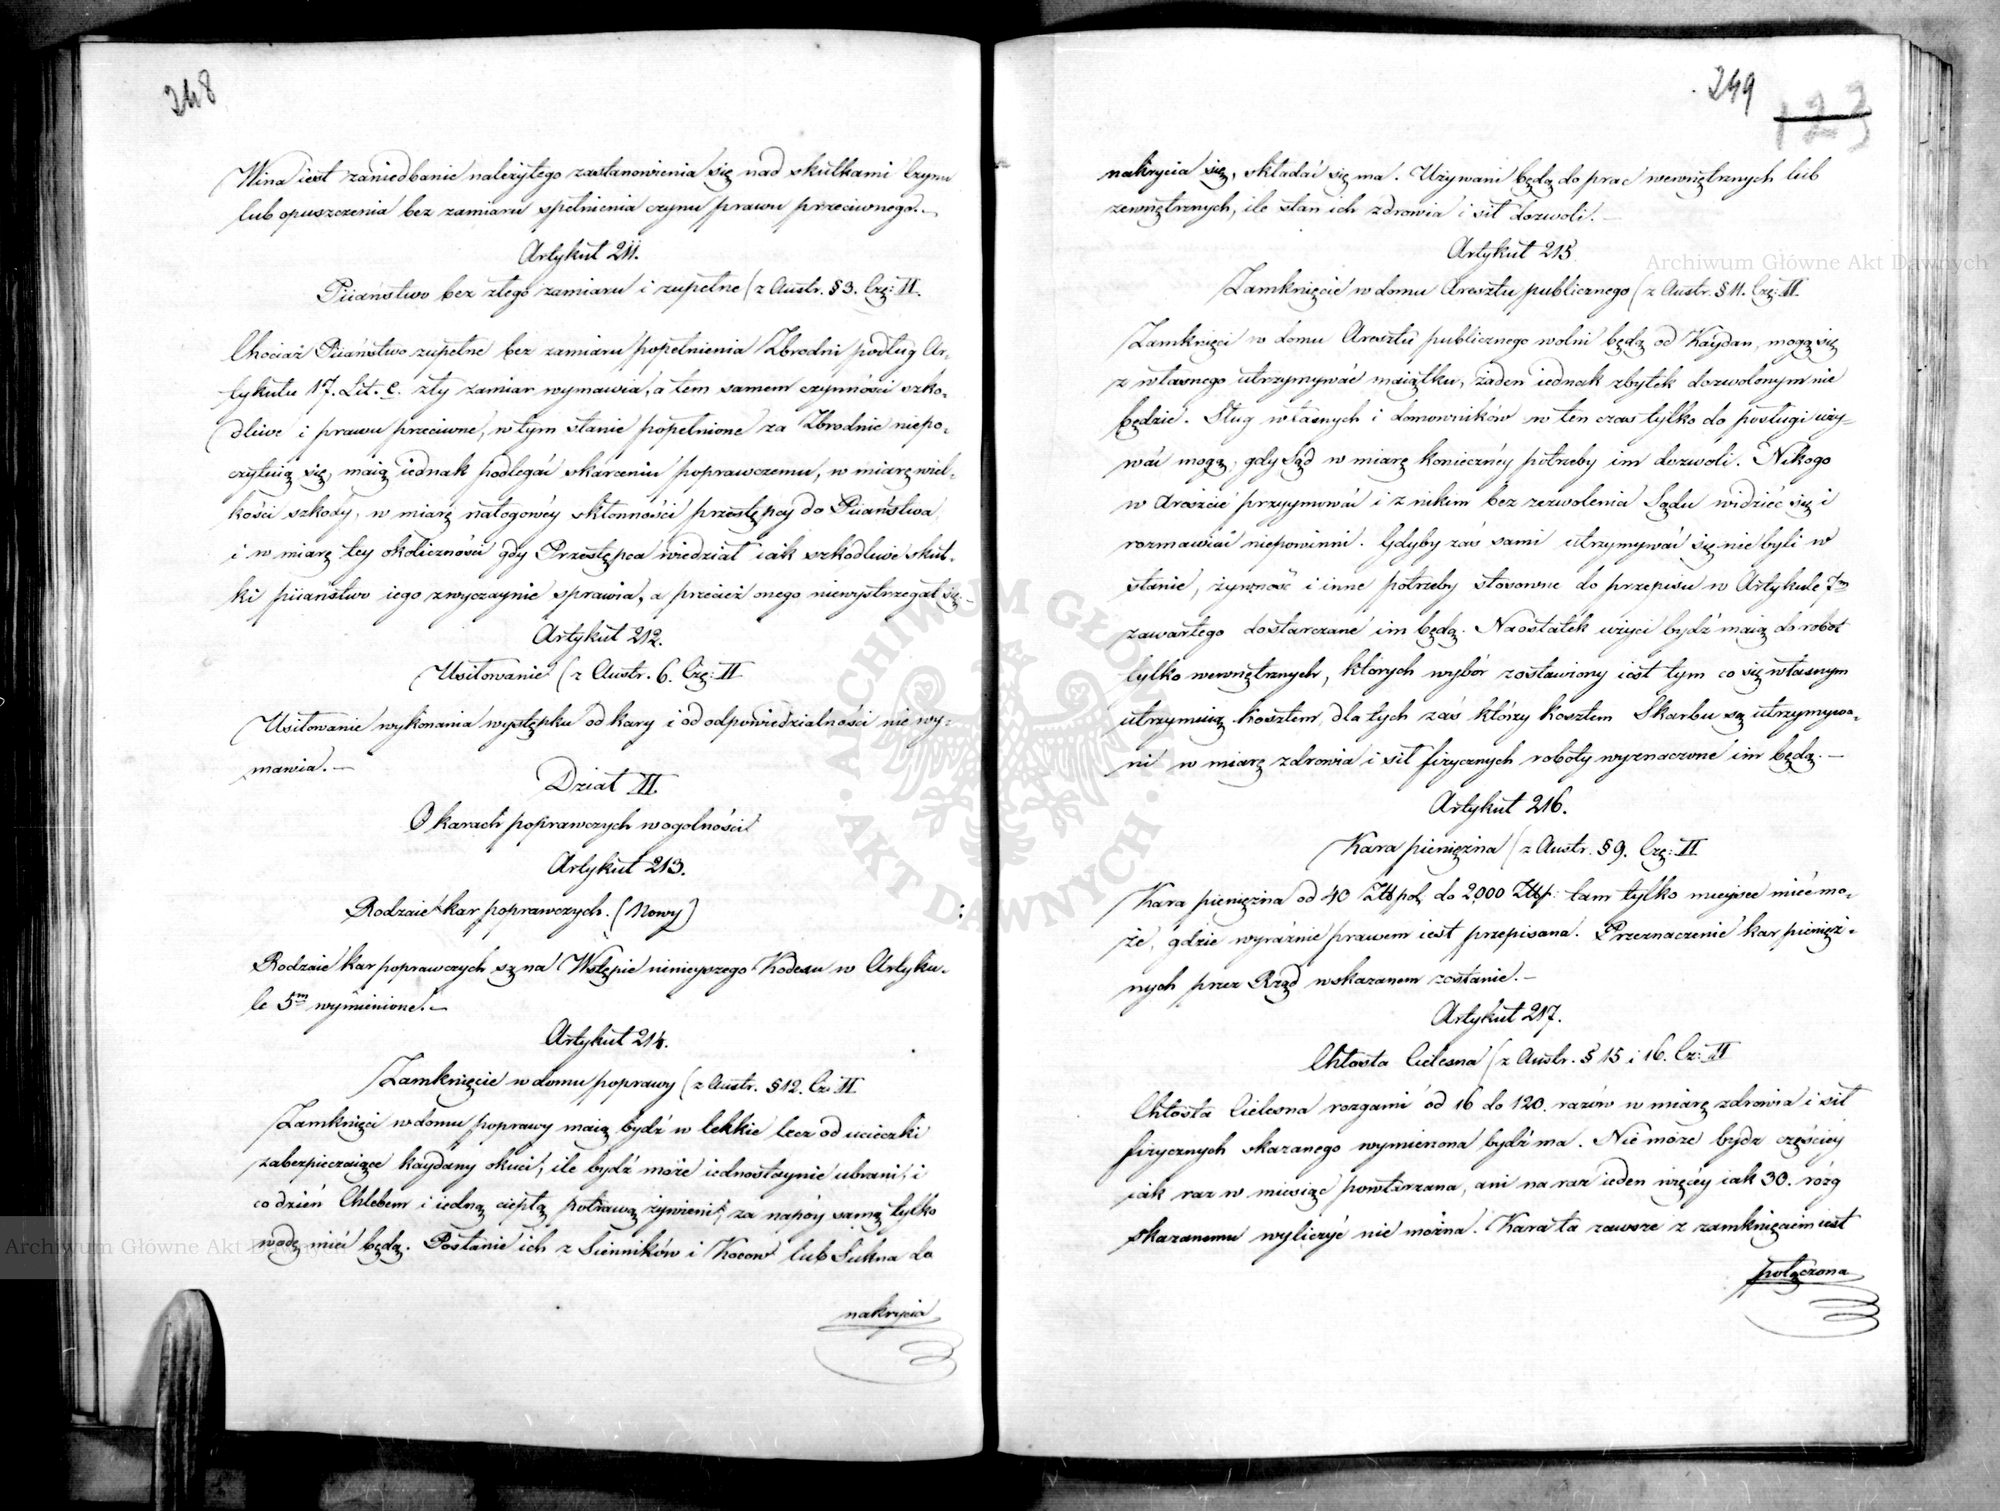 248
Wina iest zaniedbanie należytego zastanowienia się nad skutkami Czynu
lub opuszczenia bez zamiaru spełnienia czynu prawu przeciwnego.
Artykuł 211.
Piiaństwo bez złego zamiaru i zupełne (z Austr. § 3. Czę: II.
Chociaż Piiaństwo zupełne bez zamiaru popełnienia Zbrodni podług Ar-
tykułu 17. Lit. e. zły zamiar wymawia, a tem samem czynności szko-
dliwe i prawu przeciwne, w tym stanie popełnione za Zbrodnie niepo-
czytuią się, maią iednak podlegać skarceniu poprawczemu, w miarę wiel-
kości szkody, w miarę nałogowéy skłonności przestępcy do Piiaństwa
i w miarę tey okoliczności gdy Przestępca wiedział iak szkodliwe skut-
ki piiaństwo iego zwyczaynie sprawia, a przecież onego niewystrzegał się.
Artykuł 212.
Usiłowanie (z Austr. 6. Czę: II
Usiłowanie wykonania występku od kary i od odpowiedzialności nie wy-
mawia.
Dział II.
O karach poprawczych w ogolności
Artykuł 213.
Rodzaie kar poprawczych. (Nowy)
Rodzaie kar poprawczych są na Wstępie ninieyszego Kodexu w Artyku-
le 5m wymienione.
Artykuł 214.
Zamknięcie w domu poprawy (z Austr. § 12. Cz. II
Zamknięci w domu poprawy maią bydź w lekkie lecz od ucieczki
zabezpieczaiące kaydany okuci, ile bydź może iednostaynie ubrani, i
co dzień Chlebem i iedną ciepłą potrawą żywieni, za napóy samą tylko
wodę mieć będą. Posłanie ich z Sienników i Koców lub Sukna do
nakrycia
249
123
nakrycia się, składać się ma. Używani będą do prac wewnętrznych lub
zewnętrznych, ile stan ich zdrowia i sił dozwoli.
Artykuł 215
Zamknięcie w domu Aresztu publicznego (z Austr. § 11. Czę: II
Zamknięci w domu Aresztu publicznego wolni będą od Kaydan, mogą się
z własnego utrzymywać maiątku, żaden iednak zbytek dozwolonym nie
będzie. Sług własnych i domowników w ten czas tylko do posługi uży-
wać mogą, gdy Sąd w miarę koniecznéy potrzeby im dozwoli. Nikogo
w Areszcie przyymować i z nikim bez zezwolenia Sądu widzieć się i
rozmawiać niepowinni. Gdyby zaś sami utrzymywać się nie byli w
stanie, żywność i inne potrzeby stosowne do przepisu w Artykule 7m
zawartego dostarczane im będą. Naostatek użyci bydź maią do robot
tylko wewnętrznych, których wybór zostawiony iest tym co się własnym
utrzymuią kosztem, dla tych zaś którzy kosztem Skarbu są utrzymywa-
ni w miarę zdrowia i sił fizycznych roboty wyznaczone im będą.
Artykuł 216.
Kara pieniężna (z Austr. § 9. Czę: II
Kara pieniężna od 40 Złt pol do 2000 Złtp: tam tylko mieysce mieć mo-
że, gdzie wyraźnie prawem iest przepisana. Przeznaczenie kar pienięż-
nych przez Rząd wskazanem zostanie.
Artykuł 217.
Chłosta Cielesna (z Austr. § 15 i 16. Cz: II
Chłosta Cielesna rozgami od 16 do 120. razów w miarę zdrowia i sił
fizycznych skazanego wymierzona bydź ma. Nie może bydź częściéy
iak raz w miesiąc powtarzana, ani na raz ieden więcéy iak 30. rózg
skazanemu wyliczyć nie można. Kara ta zawsze z zamknięciem iest
połączona
Archiwum Główne Akt Dawnych
Archiwum Główne Akt Dawnych
ARCHIWUM GŁÓWNE AKT DAWNYCH